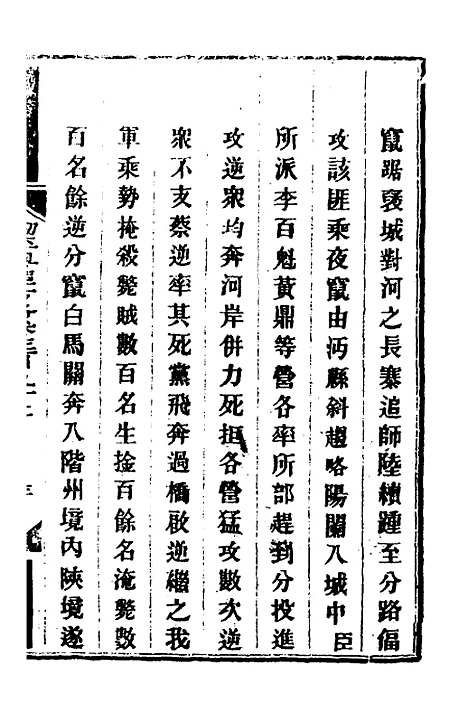 竄踞褒城對河之長寨追師陸續踵至分路偪
攻該匪乘夜竄由沔縣斜趨略陽闌入城中臣
所派李百魁黃鼎等營各率所部趕到分投進
攻逆衆均奔河岸併力死拒各營猛攻數次逆
衆不支蔡逆率其死黨飛奔過橋啟逆繼之我
軍乘勢掩殺斃賊數百名生擒百餘名淹斃數
百名餘逆分竄白馬關奔入階州境內陝境遂